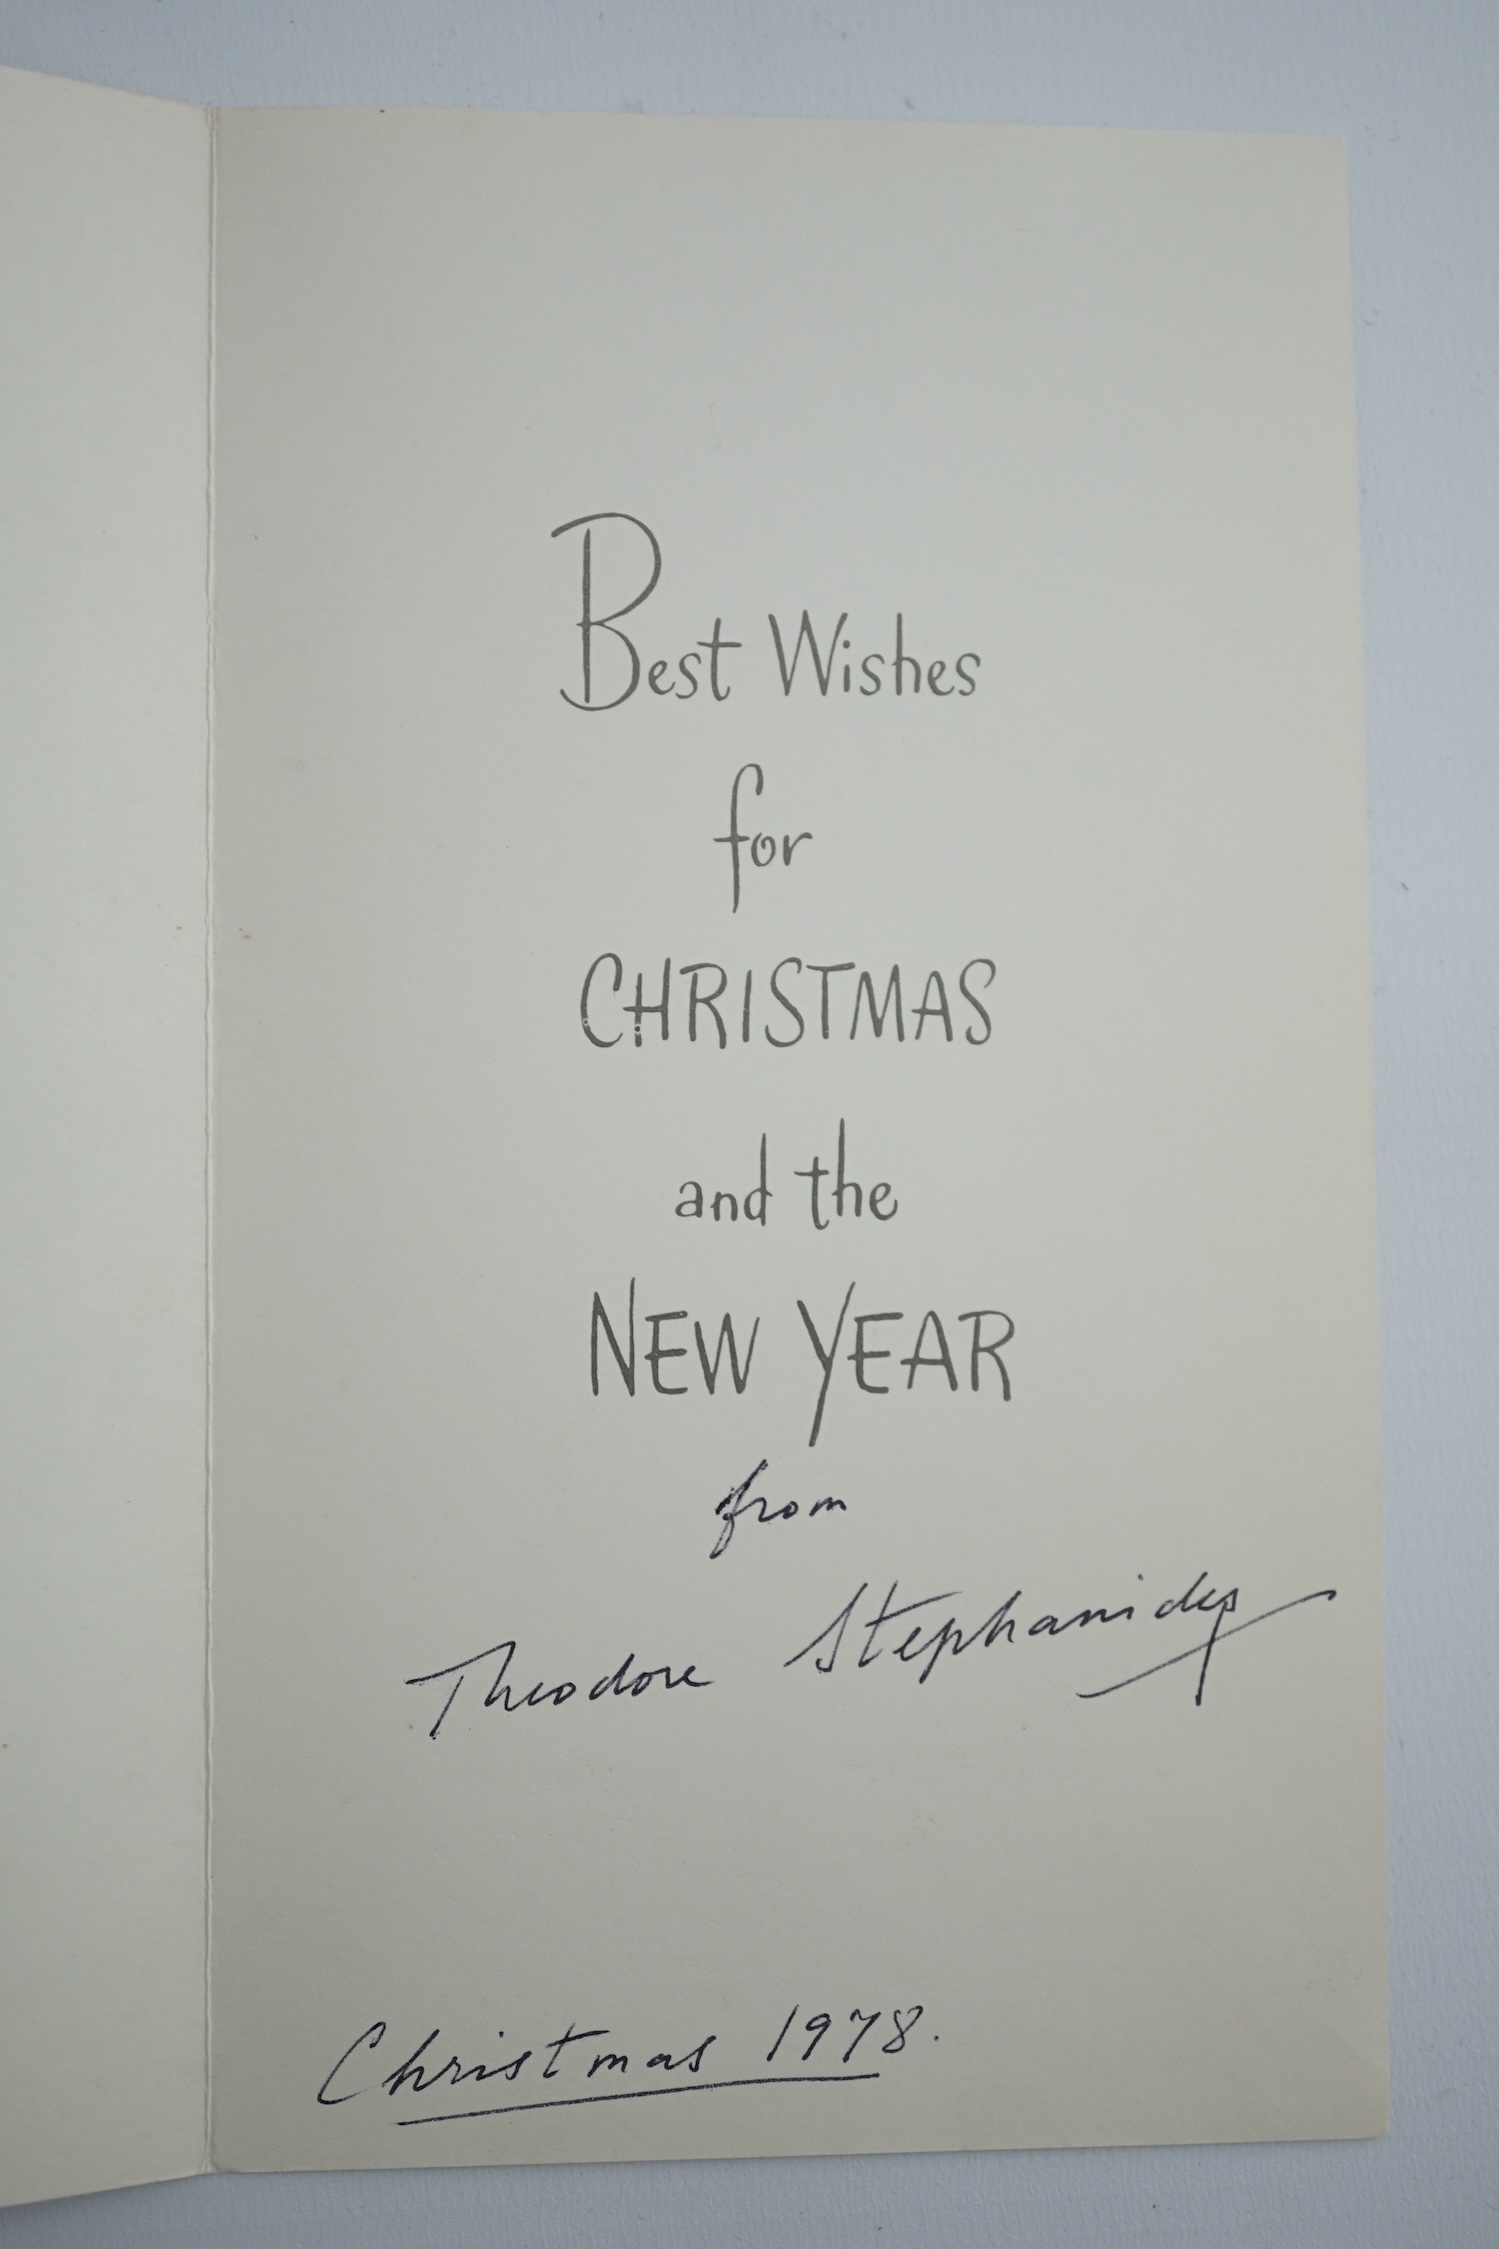 Best Wishes
for
CHRISTMAS
and the
NEW YEAR
from
Theodore Stephanides
Christmas 1978.